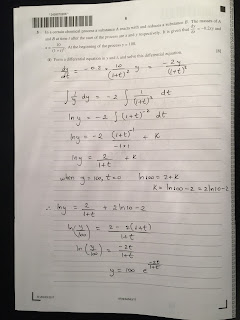 5 In a certain chemical process a substance A reacts with and reduces a substance B. The masses of A
and B at time t after the start of the process are x and y respectively. It is given that dy/dt = −0.2xy and
x = 10/(1+t)². At the beginning of the process y = 100.
(i) Form a differential equation in y and t, and solve this differential equation. [6]
dy/dt = −0.2 × 10/(1+t)² y = −2y/(1+t)²
∫ 1/y dy = −2 ∫ 1/(1+t)² dt
ln y = −2 ∫ (1+t)⁻² dt
ln y = −2 (1+t)⁻¹/(−1×1) + K
ln y = 2/(1+t) + K
when y = 100, t=0 ln 100 = 2 + K
K = ln 100 − 2 = 2 ln 10 − 2
∴ ln y = 2/(1+t) + 2 ln 10 − 2
ln (y/100) = 2 − 2(1+t)/(1+t)
ln (y/100) = −2t/(1+t)
y = 100 e^(−2t/(1+t))